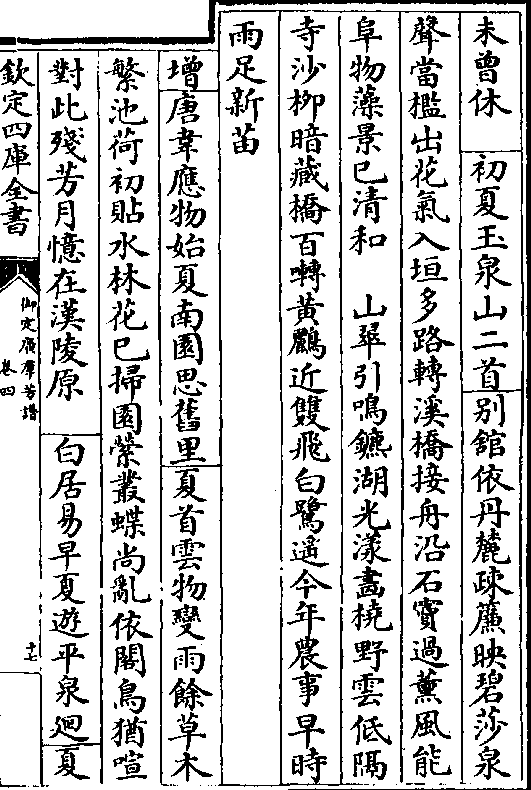 未曾休　初夏玉泉山二首别舘依丹麓疎簾映碧莎泉
聲當檻出花氣入垣多路轉溪橋接舟沿石竇過薰風能
阜物藻景巳清和　山翠引鳴鑣湖光漾畵橈野雲低隔
寺沙柳暗藏橋百囀黄鸝近雙飛白鷺遙今年農事早時
雨足新苗
增唐韋應物始夏南園思舊里夏首雲物變雨餘草木
繁池荷初貼水林花巳掃園縈叢蝶尚亂依閣鳥猶喧
對此殘芳月憶在漢陵原　白居易早夏遊平泉廻夏
欽定四庫全書
御定廣羣芳譜
卷四
十七